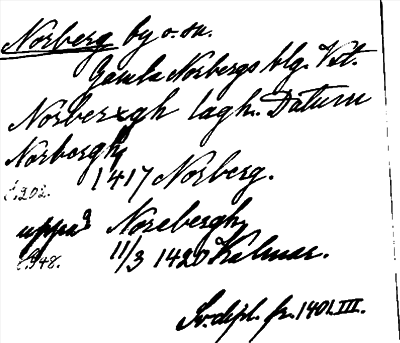 Norberg by o. sn.
Gamla Norbergs blg. Vst.
Norberxgh lagh. Datum
Norbergh
1417 Norberg.
s. 202.
uppa Norebergh
11/3 1420 Kalmar.
s. 948.
Sv. dipl. fr. 1401. III.